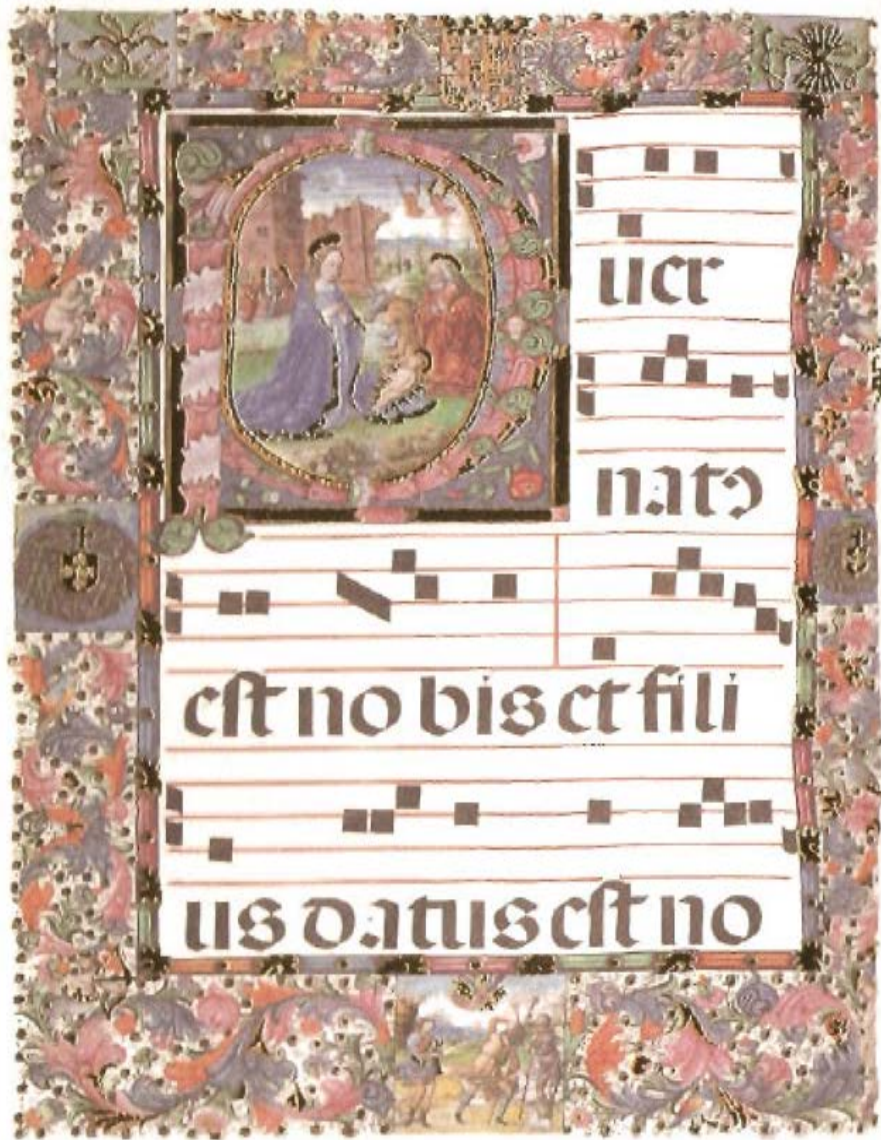 Puer
natꝰ
est no bis et fili
us datus est no